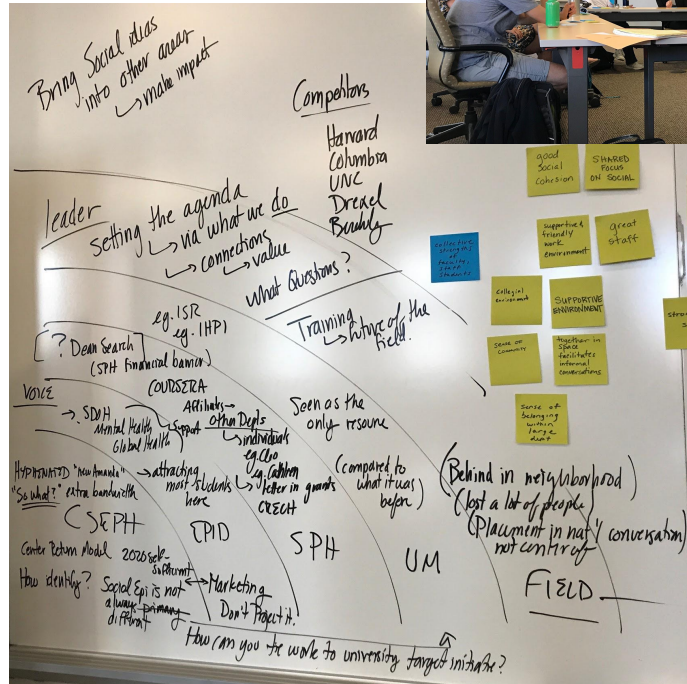 Bring Social ideas
into other areas
↳ make impact
Competitors
Harvard
Columbia
UNC
Drexel
leader
setting the agenda
↳ via what we do
↳ connections
↳ value
What Questions?
Training
↳ future of the
field.
eg. ISR
eg. IHPI
[? Dean Search]
(SPH Financial banner)
VOICE
COURSERA
→ SDOH
Mental Health
Global Health
Support
Affiliates →
Other Depts
↳ individuals
eg. Cleo
↳ eg.
letter in grants
CRECH
Seen as the
only resource
HYPHENATED "new Amanda"
"So what?" extra bandwidth
→ attracting
most students
here
(compared to
what it was
before)
(Behind in neighborhood)
(lost a lot of people)
(Placement in nat'l conversation)
not center of
CSEPH
EPID
SPH
UM
FIELD
Center Return Model 2020 self-
sufficient
How identify?
Social Epi is not
always primary
different
↔ Marketing
Don't Project it.
How can you tie work to university target initiative?
good
social
cohesion
SHARED
FOCUS
ON SOCIAL
collective
strengths
of
faculty,
staff
students
supportive &
friendly
work
environment
great
staff
collegial
environment
SUPPORTIVE
ENVIRONMENT
sense of
community
together in
space
facilitates
informal
conversations
sense of
belonging
within
large
dept